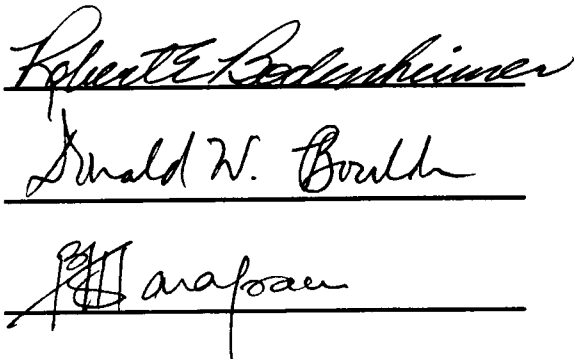 Robert E Bodenheimer
Donald W. Bouldin